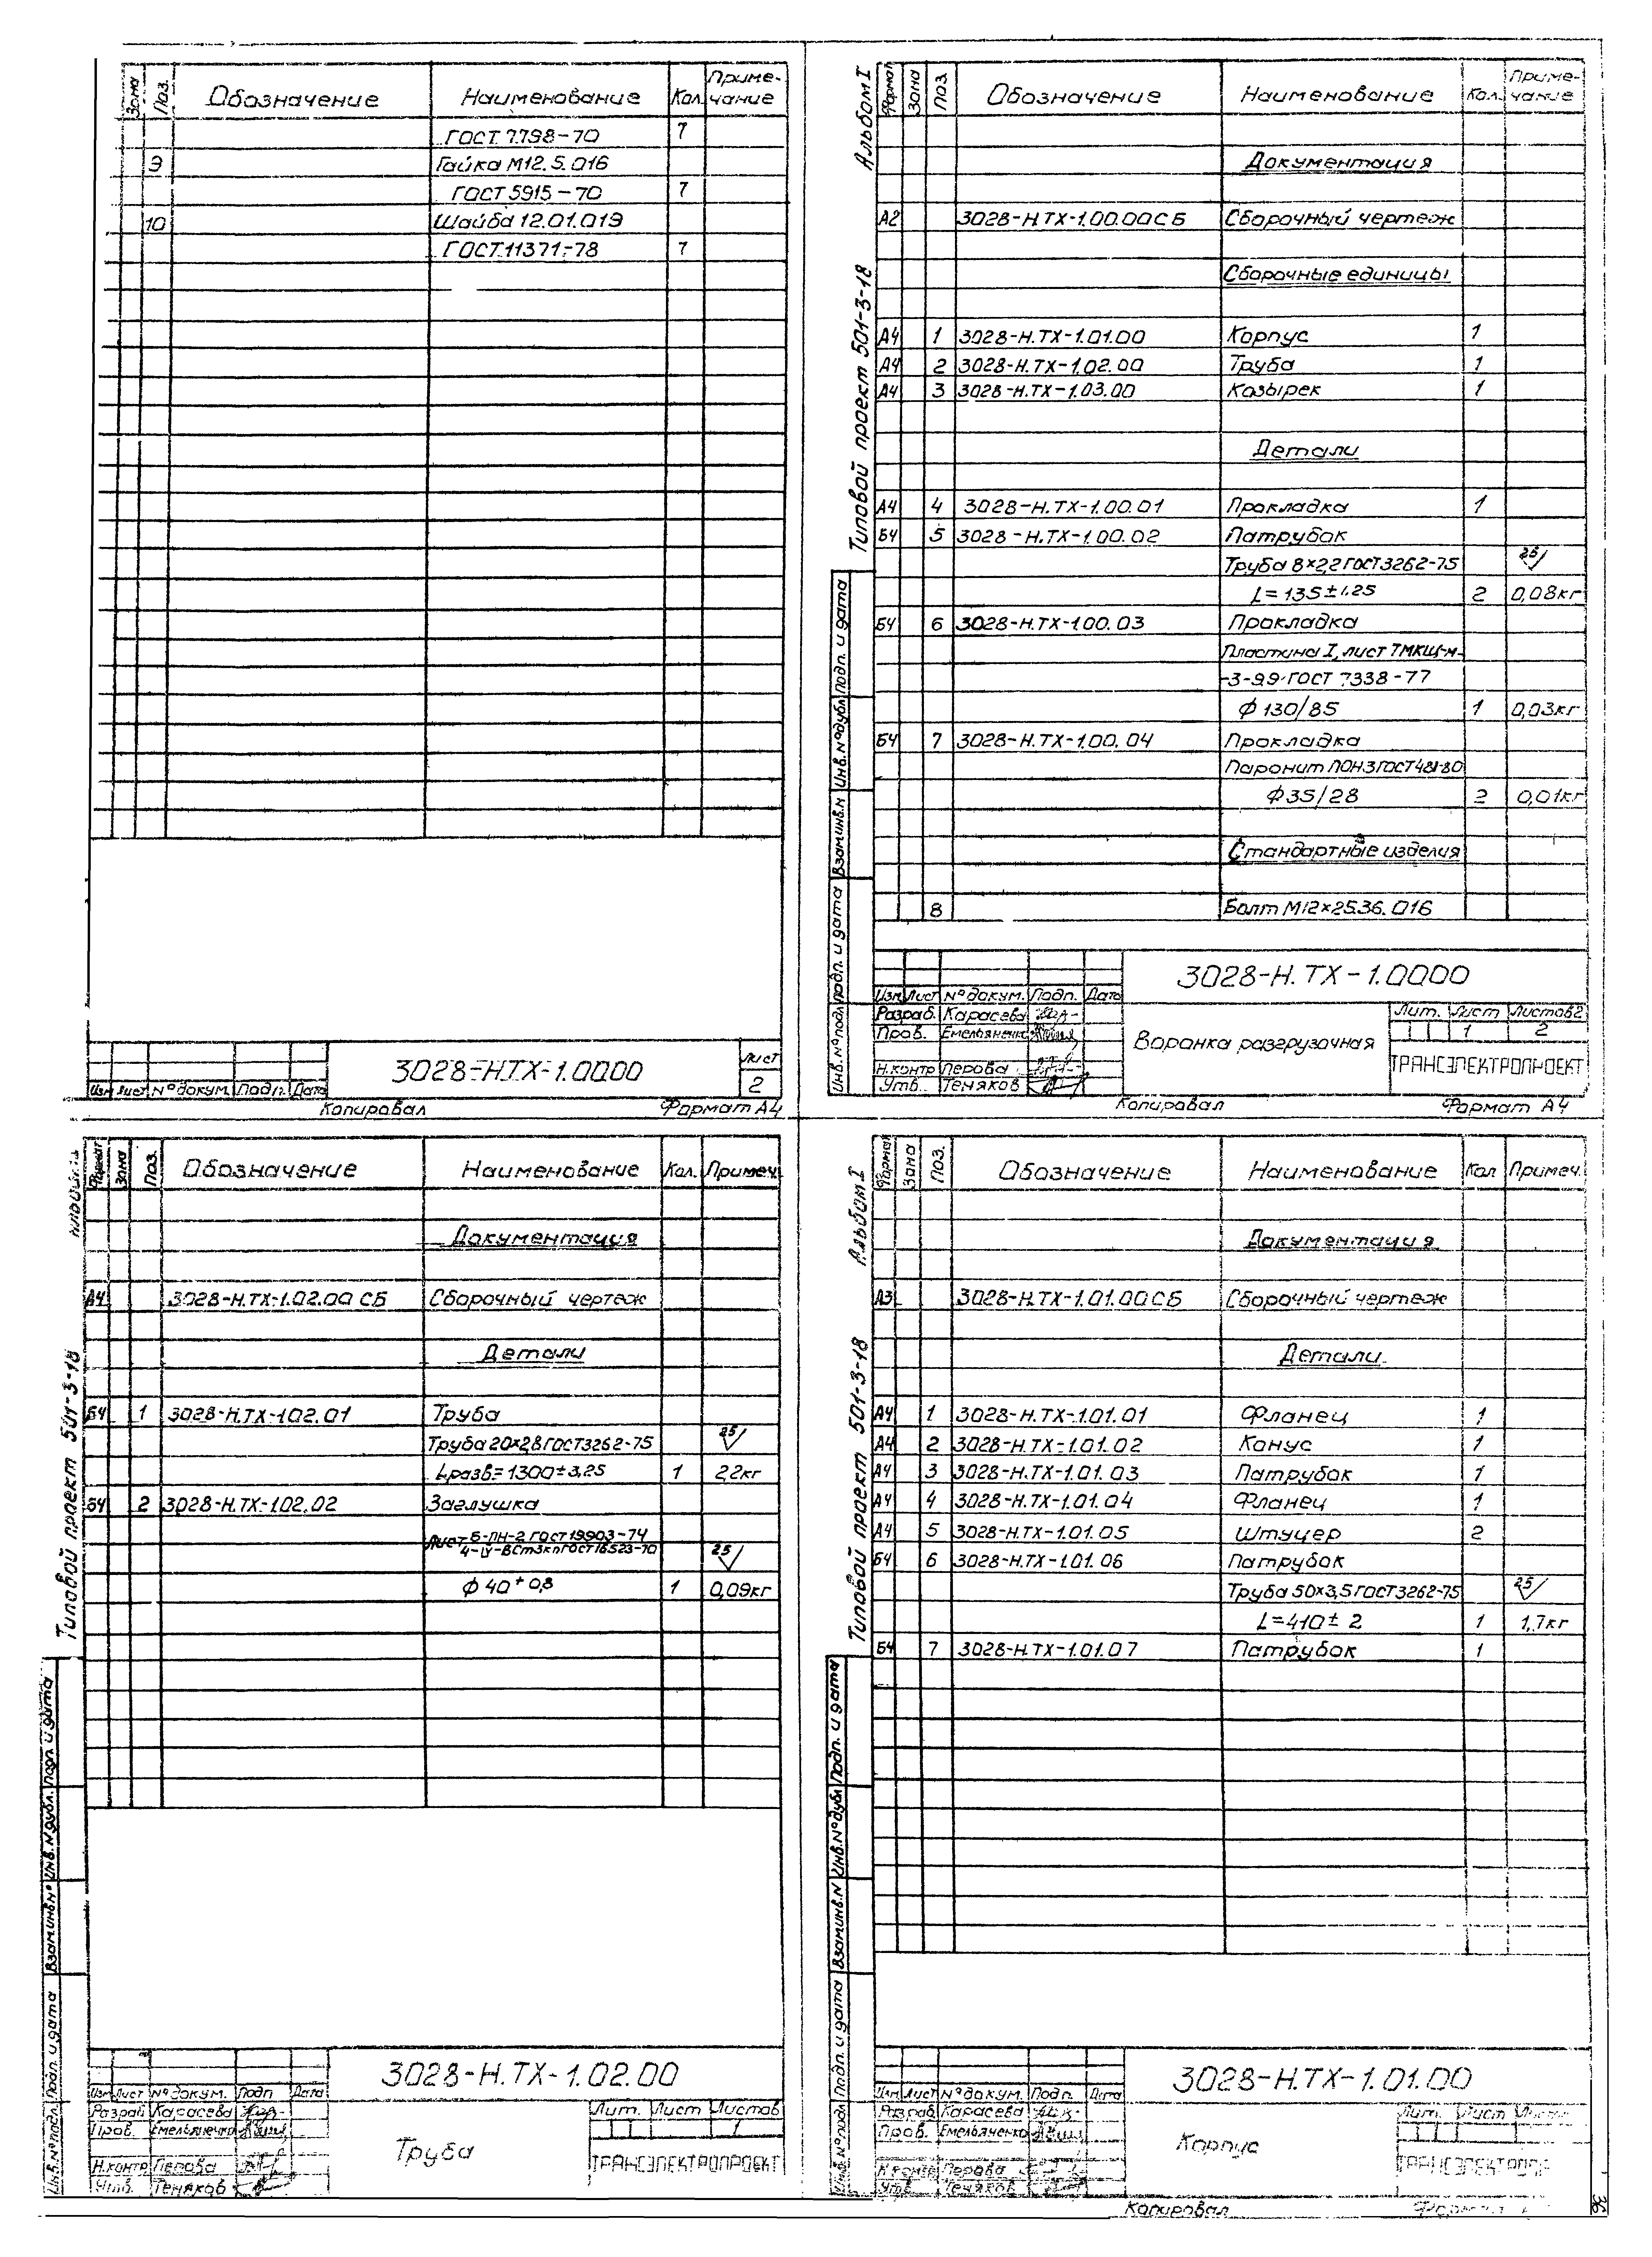 Зона Поз. Обозначение Наименование Кол. Приме-чание
ГОСТ 7798-70 7
9 Гайка М12.5.016
ГОСТ 5915-70 7
10 Шайба 12.01.019
ГОСТ 11371-78 7
Изм Лист № докум. Подп. Дата
3028-Н.ТХ-1.0000
Лист
2
Копировал Формат А4
Альбом I
Типовой проект 501-3-18
Формат Зона Поз. Обозначение Наименование Кол. Приме-чание
Документация
А2 3028-Н.ТХ-1.00.00СБ Сборочный чертеж
Сборочные единицы
А4 1 3028-Н.ТХ-1.01.00 Корпус 1
А4 2 3028-Н.ТХ-1.02.00 Труба 1
А4 3 3028-Н.ТХ-1.03.00 Козырек 1
Детали
А4 4 3028-Н.ТХ-1.00.01 Прокладка 1
БЧ 5 3028-Н.ТХ-1.00.02 Патрубок
Труба 8×2,2 ГОСТ 3262-75 25
L=135±1.25 2 0,08кг
БЧ 6 3028-Н.ТХ-1.00.03 Прокладка
Пластина I, лист ТМКЩ-М-
-3-99 ГОСТ 7338-77
Ф 130/85 1 0,03кг
БЧ 7 3028-Н.ТХ-1.00.04 Прокладка
Паронит ПОН.3 ГОСТ 481-80
Ф35/28 2 0,01кг
Стандартные изделия
8 Болт М12×25.36.016
Инв.№подл Подп. и дата Взам.инв.№ Инв.№дубл Подп. и дата
Изм Лист № докум. Подп. Дата
Разраб. Карасева
Пров. Емельяненко
Н.контр Перова
Утв. Теняков
3028-Н.ТХ-1.0000
Воронка разгрузочная
Лит. Лист Листов 2
1 2
ТРАНСЭЛЕКТРОПРОЕКТ
Копировал Формат А4
Типовой проект 501-3-18
Формат Зона Поз. Обозначение Наименование Кол. Примеч.
Документация
А4 3028-Н.ТХ-1.02.00 СБ Сборочный чертеж
Детали
БЧ 1 3028-Н.ТХ-1.02.01 Труба
Труба 20×2,8 ГОСТ 3262-75 25
Lразв=1300±3,25 1 2,2кг
БЧ 2 3028-Н.ТХ-1.02.02 Заглушка
Лист Б-ПН-2 ГОСТ 19903-74
4-IV-ВСт3кп ГОСТ 16523-70 25
Ф 40±0,8 1 0,09кг
Инв.№подл Подп. и дата Взам.инв.№ Инв.№дубл. Подп. и дата
Изм Лист № докум. Подп Дата
Разраб Карасева
Пров. Емельяненко
Н.контр Перова
Утв. Теняков
3028-Н.ТХ-1.02.00
Труба
Лит. Лист Листов
1
ТРАНСЭЛЕКТРОПРОЕКТ
Альбом I
Типовой проект 501-3-18
Формат Зона Поз. Обозначение Наименование Кол Примеч.
Документация
А3 3028-Н.ТХ-1.01.00СБ Сборочный чертеж
Детали
А4 1 3028-Н.ТХ-1.01.01 Фланец 1
А4 2 3028-Н.ТХ-1.01.02 Конус 1
А4 3 3028-Н.ТХ-1.01.03 Патрубок 1
А4 4 3028-Н.ТХ-1.01.04 Фланец 1
А4 5 3028-Н.ТХ-1.01.05 Штуцер 2
БЧ 6 3028-Н.ТХ-1.01.06 Патрубок
Труба 50×3,5 ГОСТ 3262-75 25
L=410±2 1 1,7кг
БЧ 7 3028-Н.ТХ-1.01.07 Патрубок 1
Инв.№подл Подп. и дата Взам.инв.№ Инв.№дубл Подп. и дата
Изм Лист № докум. Подп. Дата
Разраб Карасева
Пров. Емельяненко
Н.контр Перова
Утв. Теняков
3028-Н.ТХ-1.01.00
Корпус
Лит. Лист
ТРАНСЭЛЕКТРОПР
Копировал
36